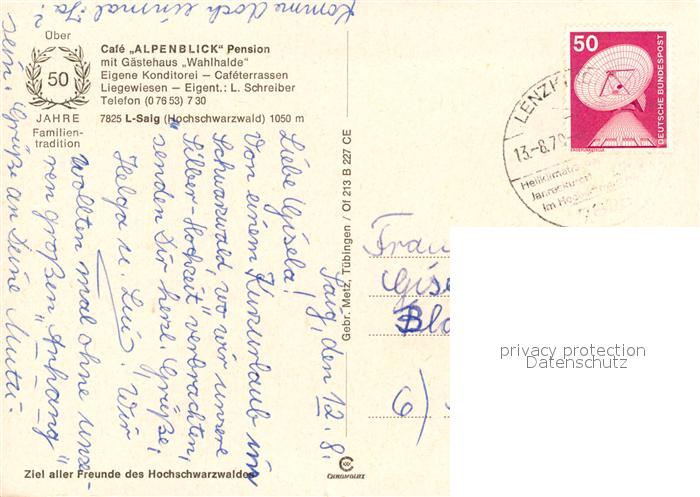 Über
50
JAHRE
Familien-
tradition
Café „ALPENBLICK" Pension
mit Gästehaus „Wahlhalde"
Eigene Konditorei — Caféterrassen
Liegewiesen — Eigent.: L. Schreiber
Telefon (0 76 53) 7 30
7825 L-Saig (Hochschwarzwald) 1050 m
Saig, den 12. 8.
Liebe Gisela!
Von einem Kurzurlaub im
Schwarzwald, wo wir unsere
"Silber-Hochzeit" verbrachten,
senden Dir herzl. Grüße,
Helga u. Lui. Wir
wollten mal ohne unse-
ren großen "Anhang"
sein. Grüße an Deine Mutti.
Komme doch einmal. Ja?
Gebr. Metz, Tübingen / Of 213 B 227 CE
Ziel aller Freunde des Hochschwarzwaldes
CHROMOLUX
50
DEUTSCHE BUNDESPOST
ERDEFUNKSTELLE
LENZK
13.-8.79
Heilklimatis
im Ho
Frau
Gise
Bla
6)
privacy protection
Datenschutz